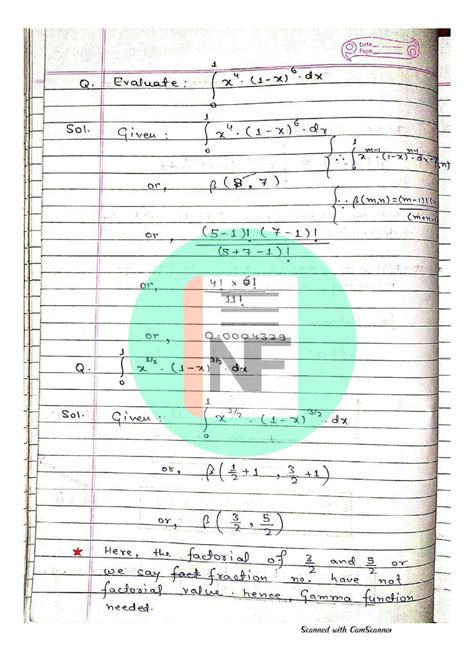 Date
Page
Q. Evaluate: ∫₀¹ x⁴·(1-x)⁶·dx
Sol. Given: ∫₀¹ x⁴·(1-x)⁶·dx
{∴ ∫₀¹ x^(m-1)·(1-x)^(n-1)·dx
or, β(5, 7)
{∵ β(m,n) = (m-1)!
or, (5-1)! (7-1)! / (5+7-1)!
or, 4! × 6! / 11!
or, 0.0004329
NF
Q. ∫₀¹ x^(1/2)·(1-x)^(3/2)·dx
Sol. Given: ∫₀¹ x^(3/2)·(1-x)^(3/2)·dx
or, β(1/2 +1, 3/2 +1)
or, β(3/2, 5/2)
★ Here, the factorial of 3/2 and 5/2 or
we say fact fraction no. have not
factorial value. hence, Gamma function
needed.
Scanned with CamScanner